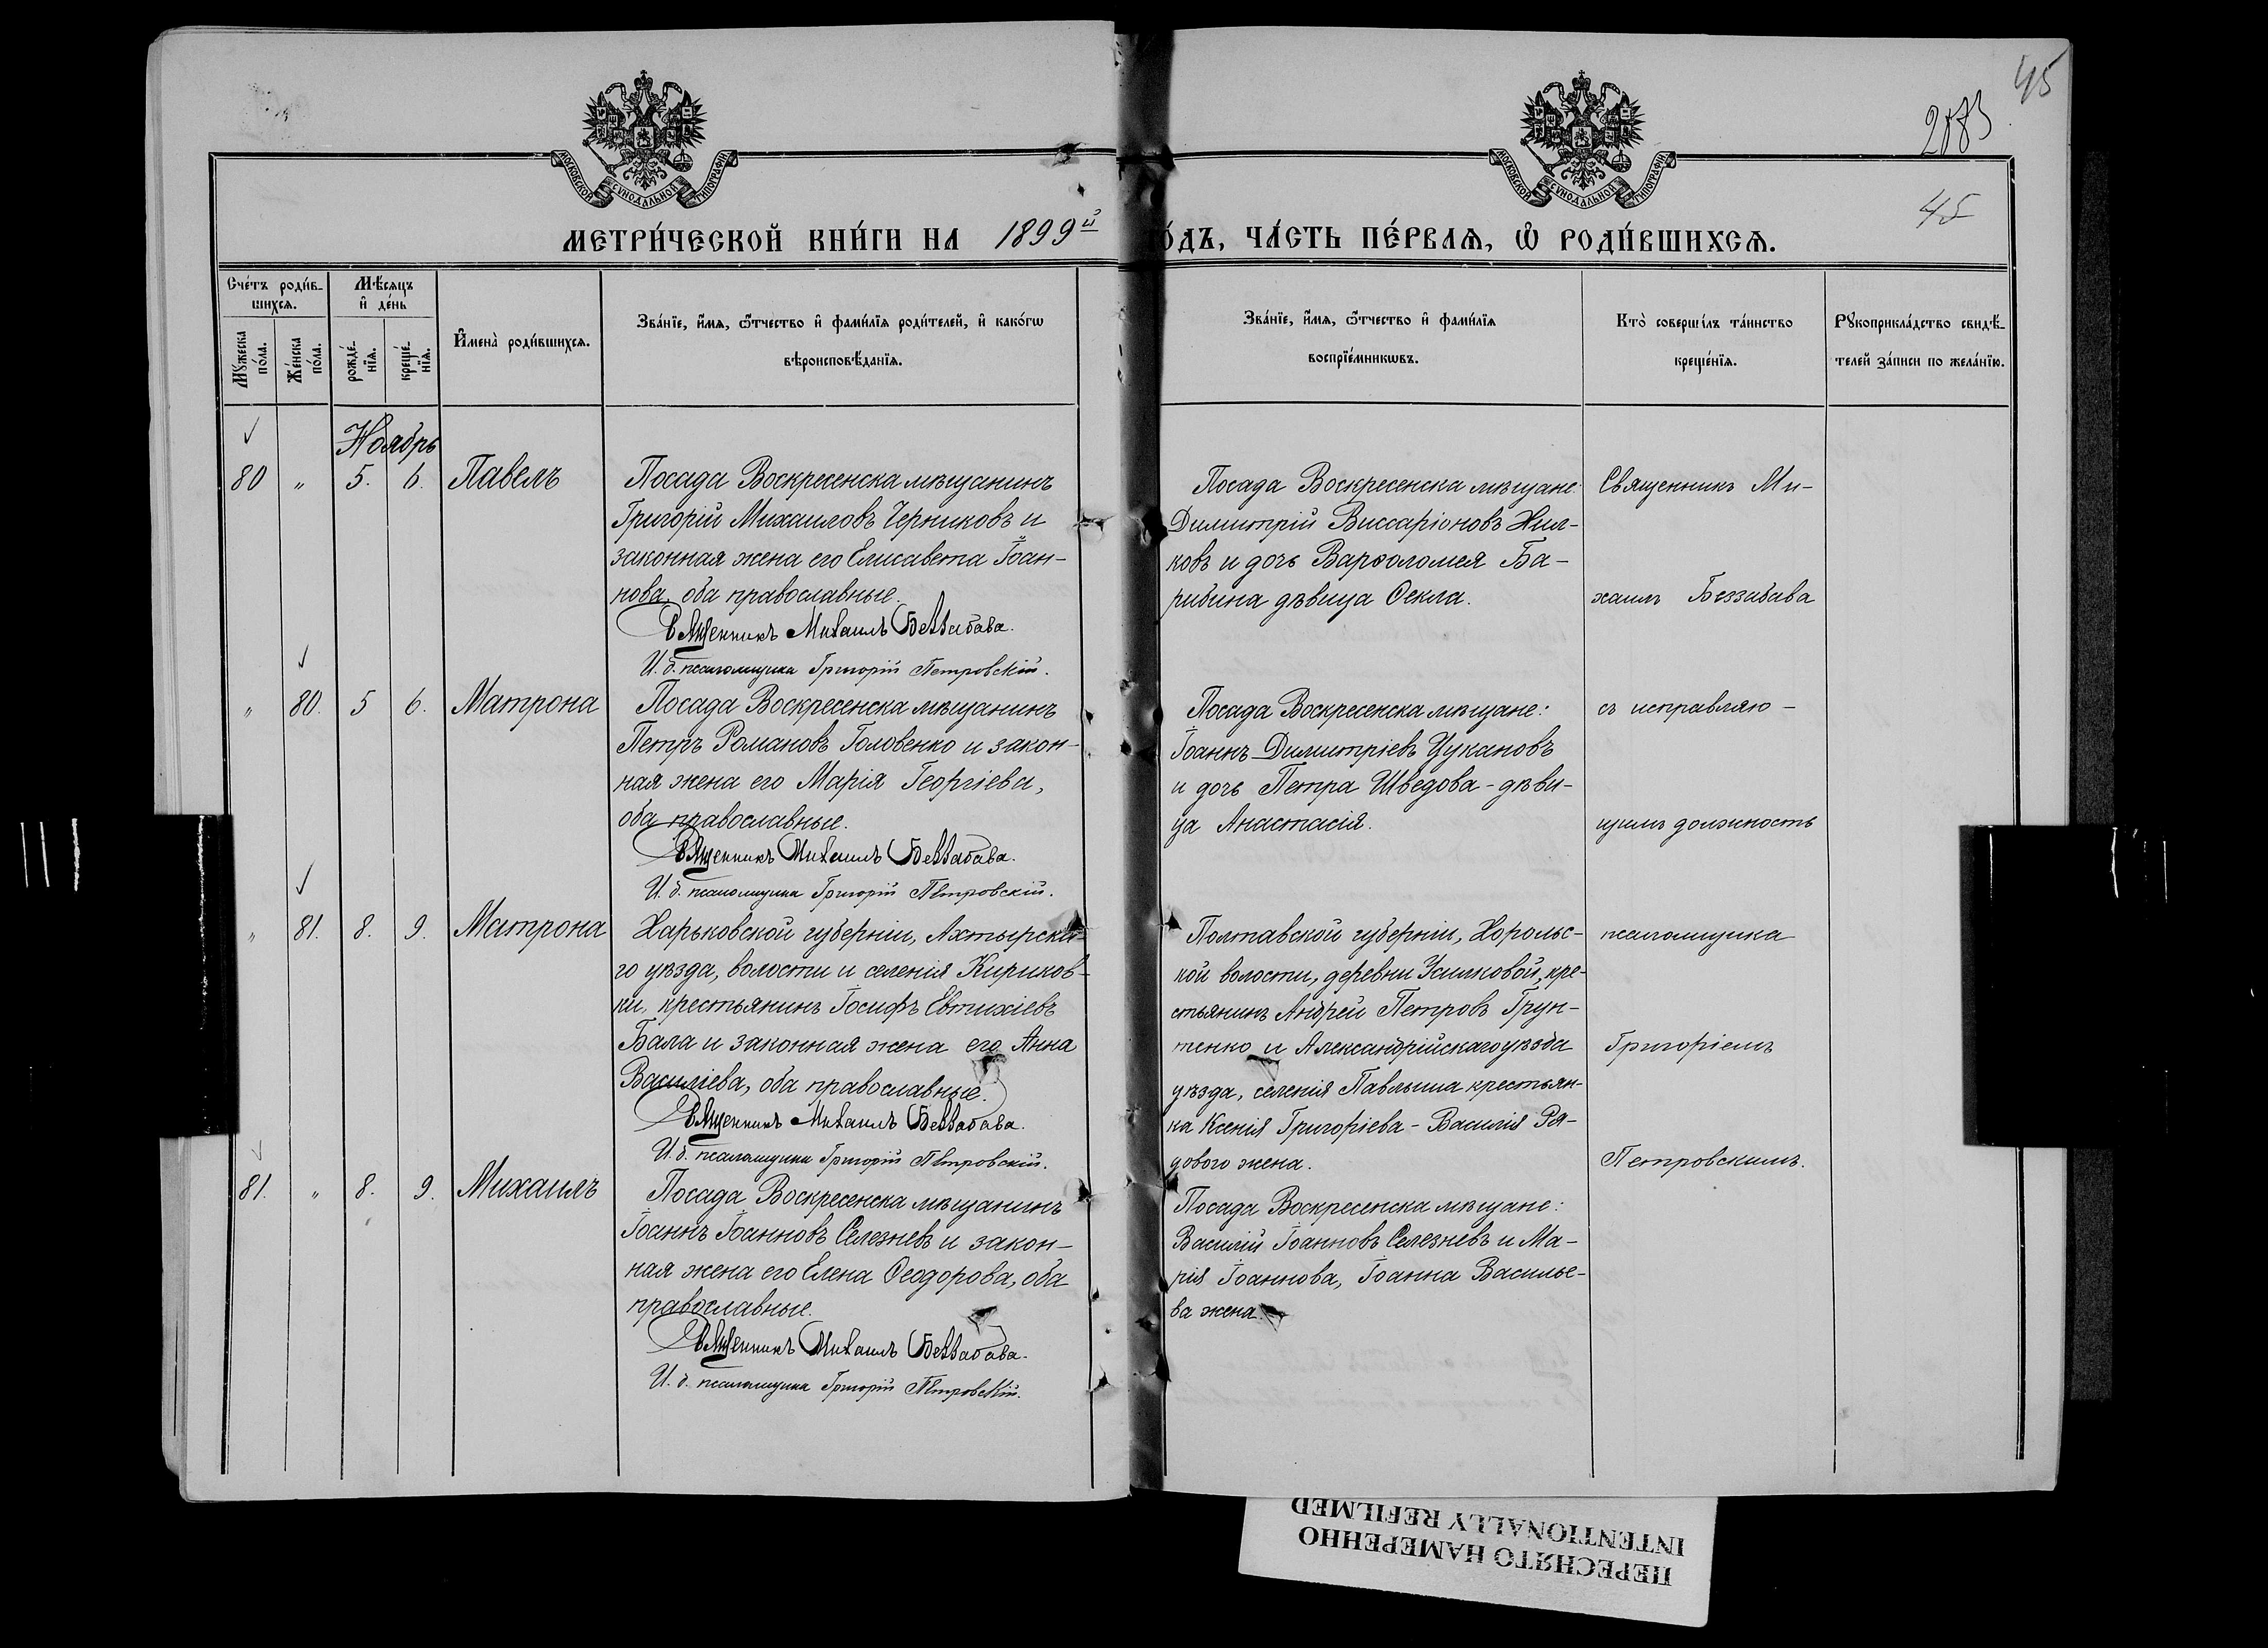 45
2083
45
МОСКОВСКОЙ СѴНОДАЛЬНОЙ ТИПОГРАФІИ
МОСКОВСКОЙ СѴНОДАЛЬНОЙ ТИПОГРАФІИ
МЕТРИ́ЧЕСКОЙ КНИ́ГИ НА 1899й
О́ДЪ, ЧА́СТЬ ПЕ́РВАѦ, Ѽ РОДИ́ВШИХСѦ.
Сче́тъ роди́в-
шихсѧ.
Мꙋжеска
по́ла.
Же́нска
по́ла.
Мѣ́сяцъ
и҆ де́нь
рожде́-
нїѧ.
креще́-
нїѧ.
И҆мена̀ роди́вшихсѧ.
Зва́нїе, и҆́мѧ, ѻ҆́тчество и҆ фами́лїѧ роди́телей, и҆ како́гѡ
вѣроисповѣ́данїѧ.
Зва́нїе, и҆́мѧ, ѻ҆́тчество и҆ фами́лїѧ
воспрїе́мникѡвъ.
Кто̀ соверши́лъ та́инство
креще́нїѧ.
Рꙋкоприкла́дство свидѣ́-
телей за́писи по жела́нїю.
Ноябрь
80 " 5. 6. Павелъ
Посада Воскресенска мѣщанинъ
Григорій Михаиловъ Черниковъ и
законная жена его Елисавета Іоан-
нова, оба православные.
Священникъ Михаилъ Беззабава.
И. д. псаломщика Григорій Петровскій.
Посада Воскресенска мѣщане:
Димитрій Виссаріоновъ Хил-
ковъ и дочь Варѳоломея Ба-
рибина дѣвица Ѳекла.
" 80. 5 6. Матрона
Посада Воскресенска мѣщанинъ
Петръ Романовъ Головенко и закон-
ная жена его Марія Георгіева,
оба православные.
Священникъ Михаилъ Беззабава.
И. д. псаломщика Григорій Петровскій.
Посада Воскресенска мѣщане:
Іоаннъ Димитріевъ Цукановъ
и дочь Петра Шведова - дѣви-
ца Анастасія.
" 81. 8. 9. Матрона
Харьковской губерніи, Ахтырска-
го уѣзда, волости и селенія Кириков-
ки, крестьянинъ Іосифъ Евтихіевъ
Бала и законная жена его Анна
Василіева, оба православные.
Священникъ Михаилъ Беззабава.
И. д. псаломщика Григорій Петровскій.
Полтавской губерніи, Хорольс-
кой волости, деревни кре-
стьянинъ Андрей Петровъ Грун-
тенко и Александрійскаго уѣзда
уѣзда, селенія Павлыша крестьян-
ка Ксенія Григоріева - Василія Ря-
дового жена.
81. " 8. 9. Михаилъ
Посада Воскресенска мѣщанинъ
Іоаннъ Іоанновъ Селезневъ и закон-
ная жена его Елена Ѳеодорова, оба
православные.
Священникъ Михаилъ Беззабава.
И. д. псаломщика Григорій Петровскій.
Посада Воскресенска мѣщане:
Василій Іоанновъ Селезневъ и Ма-
рія Іоаннова, Іоанна Василье-
ва жена.
Священникъ Ми-
хаилъ Беззабава
съ исправляю-
щимъ должность
псаломщика
Григоріемъ
Петровскимъ.
ПЕРЕСНЯТО НАМЕРЕННО
INTENTIONALLY REFILMED